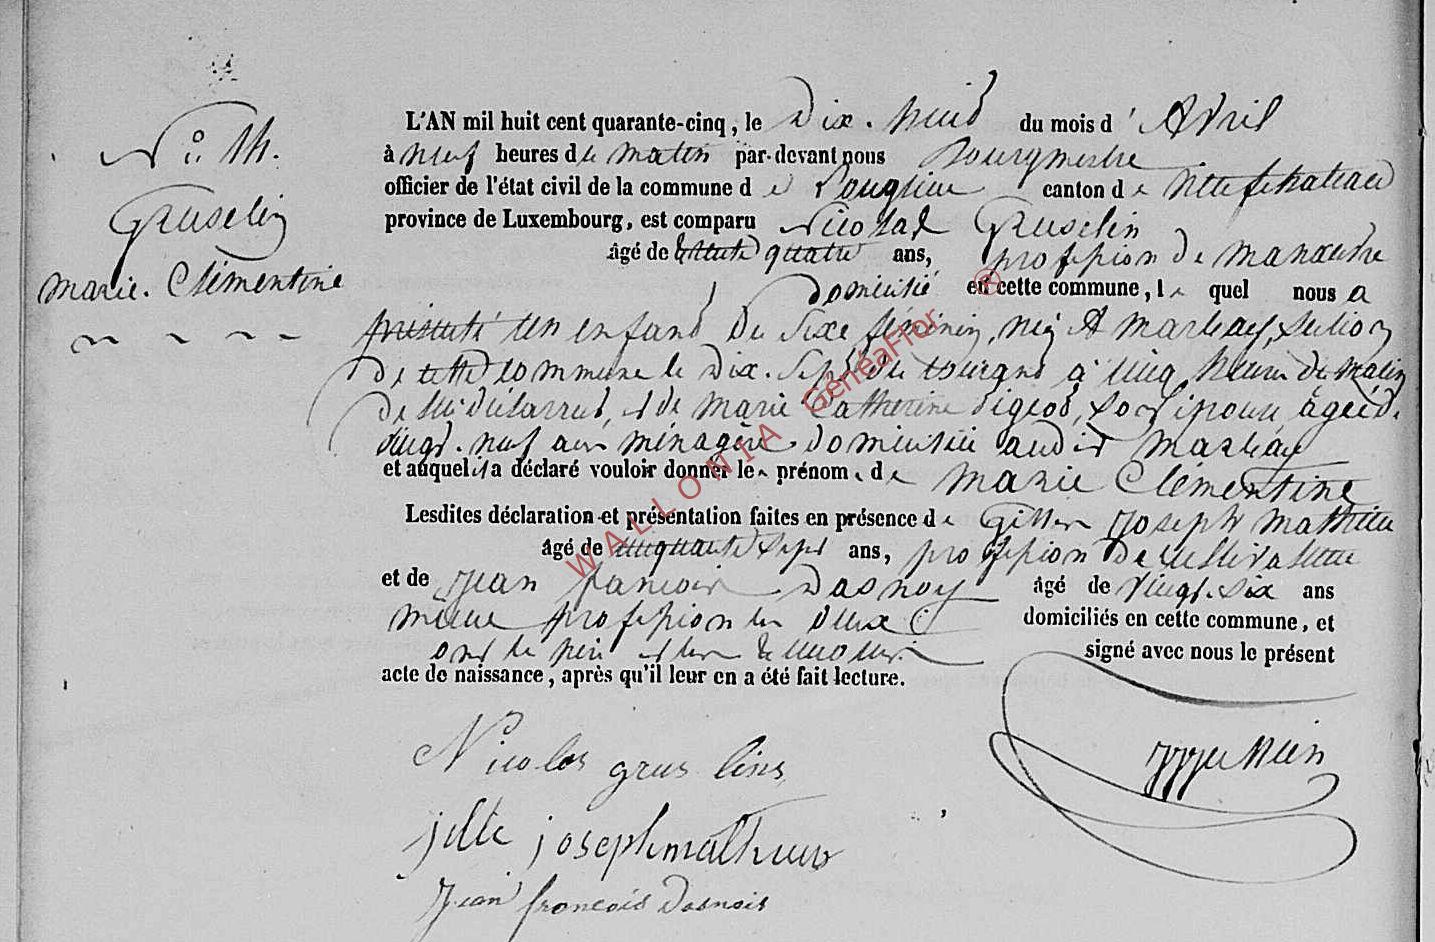 N.o 14.
Gruselin
Marie. Clémentine
L'AN mil huit cent quarante-cinq, le Dix. huit du mois d' Avril
à neuf heures du matin par-devant nous Bourgmestre
officier de l'état civil de la commune de canton de Neufchateau
province de Luxembourg, est comparu Nicolas Gruselin
âgé de trente quatre ans, profession de manoeuvre
domicilié en cette commune, le quel nous a
présenté un enfant du sexe féminin, né à section
de cette commune le Dix. sept du courant à cinq heures du matin
de lui déclarant, et de Marie Catherine son épouse, âgée de
vingt. neuf ans ménagère domiciliée audit
et auquel il a déclaré vouloir donner le prénom de Marie Clémentine
Lesdites déclaration et présentation faites en présence de Joseph Mathieu
âgé de cinquante sept ans, profession de cultivateur
et de Jean françois Dasnoy âgé de vingt. six ans
même profession les deux domiciliés en cette commune, et
ont le père et les témoins signé avec nous le présent
acte de naissance, après qu'il leur en a été fait lecture.
Nicolas grus lins
joseph mathieu
Jean françois dasnois
WALLONIA GenéaFlor ®